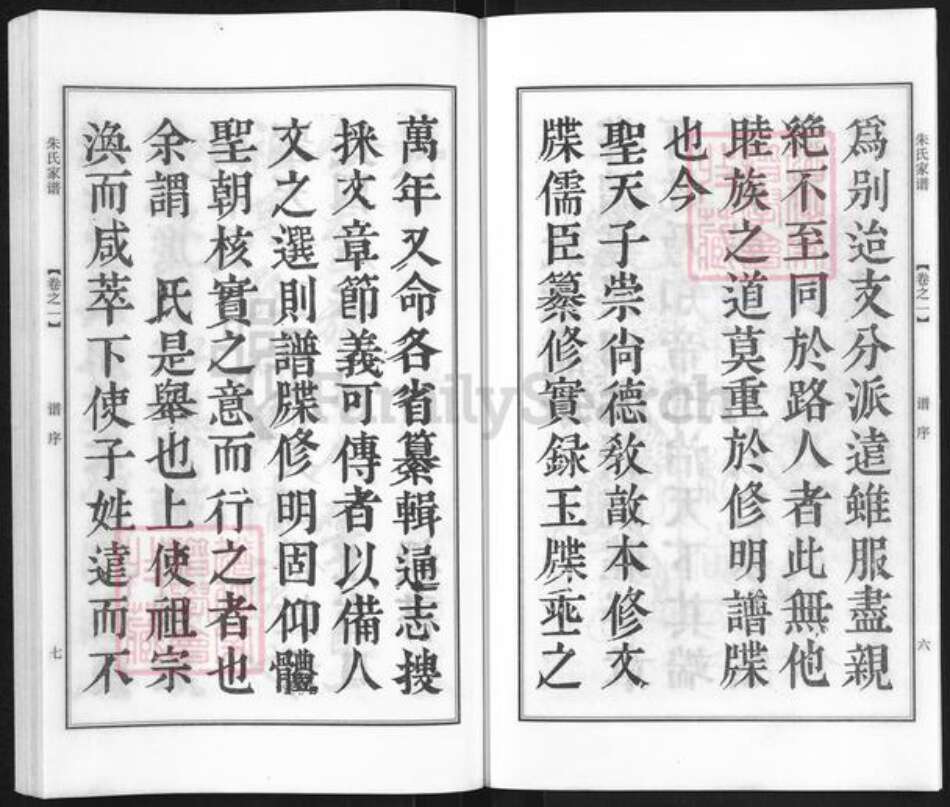 朱氏家谱 【卷之一】 谱序 六
爲别迨支分派遠雖服盡親
絶不至同於路人者此無他
睦族之道莫重於修明譜牒
也今
聖天子崇尚德教敦本修文
牒儒臣纂修實録玉牒垂之
萬年又命各省纂輯通志搜
採文章節義可傳者以備人
文之選則譜牒修明固仰體
聖朝核實之意而行之者也
余謂 氏是舉也上使祖宗
渙而咸萃下使子姓遠而不
朱氏家谱 【卷之一】 谱序 七
FamilySearch